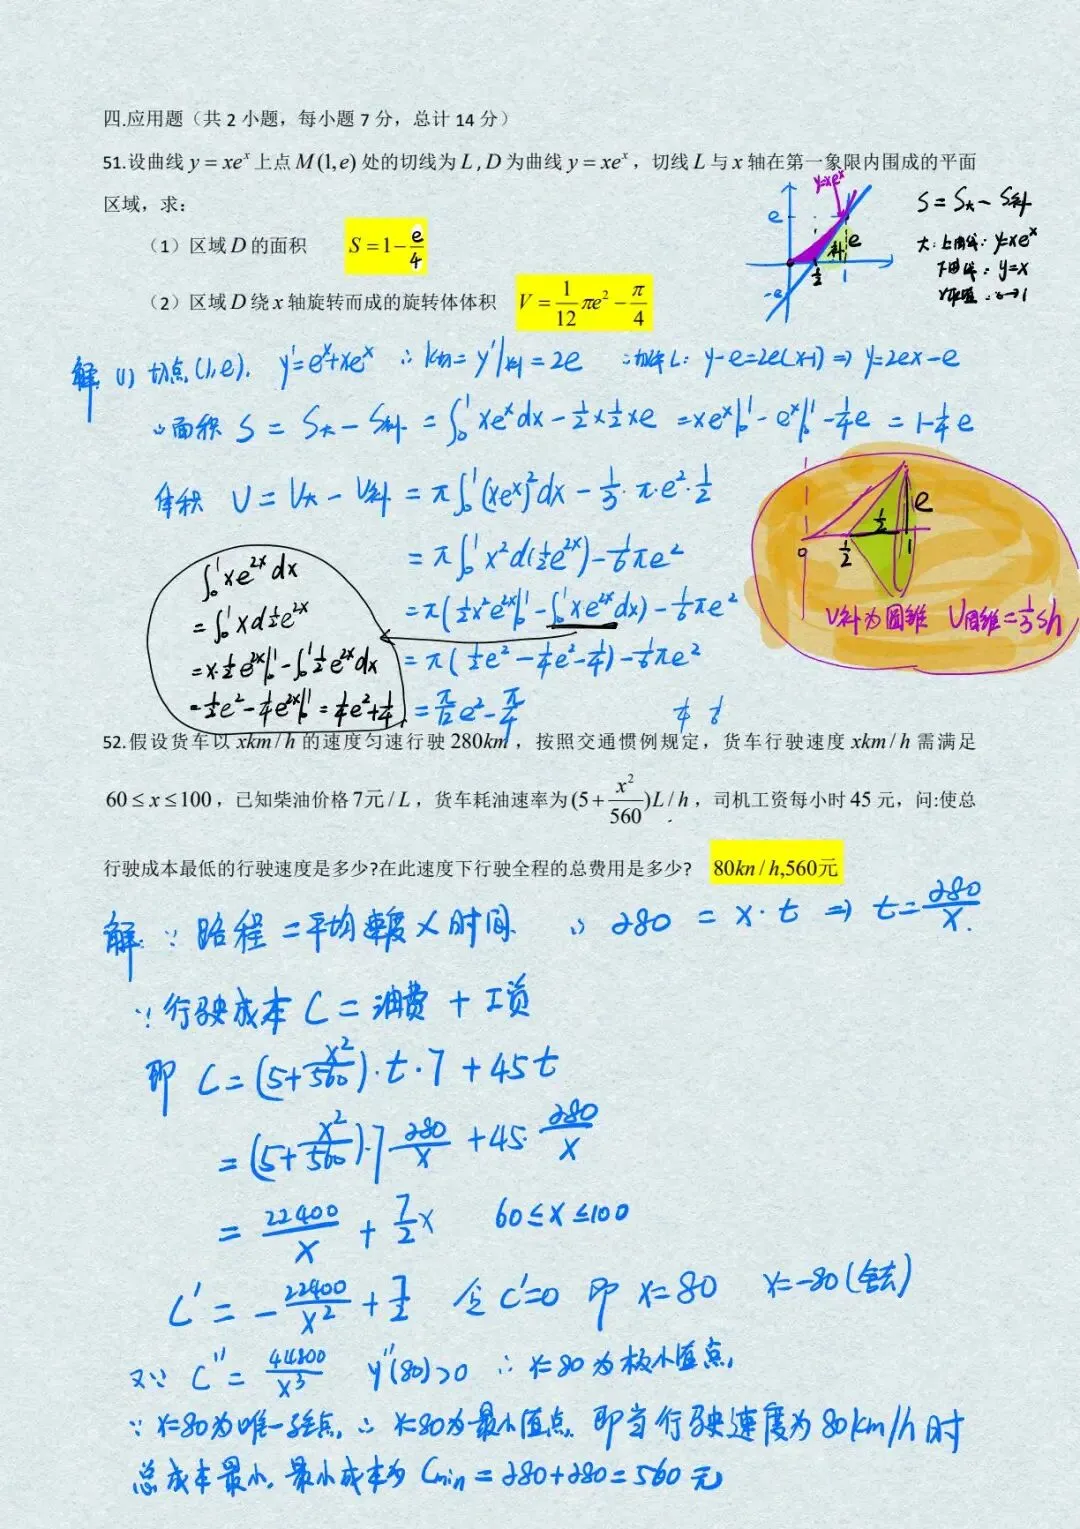 四.应用题（共 2 小题，每小题 7 分，总计 14 分）
51.设曲线 y = xe^x 上点 M(1,e) 处的切线为 L , D 为曲线 y = xe^x ，切线 L 与 x 轴在第一象限内围成的平面
区域，求：
（1）区域 D 的面积 S = 1 − e/4
（2）区域 D 绕 x 轴旋转而成的旋转体体积 V = 1/12 πe² − π/4
y=xe^x
e
e
补
1/2
1
-e
S = S大 − S补
大：上曲线：y=xe^x
下曲线：y=x
解 (1) 切点(1,e). y'=e^x+xe^x ∴ k切= y'|x=1 = 2e ∴切线L: y-e=2e(x-1) ⇒ y=2ex-e
∴面积 S = S大 − S补 = ∫₀¹ xe^x dx − 1/2×1/2×e = xe^x|₀¹ − e^x|₀¹ − 1/4e = 1-1/4 e
体积 V = V大 − V补 = π∫₀¹(xe^x)²dx − 1/3·π·e²·1/2
= π∫₀¹ x² d(1/2e^2x) − 1/6πe²
= π(1/2x²e^2x|₀¹ − ∫₀¹xe^2x dx) − 1/6πe²
= π(1/2e² − 1/4e² − 1/4) − 1/6πe²
= π/12 e² − π/4
1/4 1/6
∫₀¹ xe^2x dx
= ∫₀¹ x d 1/2 e^2x
= x·1/2e^2x|₀¹ − ∫₀¹ 1/2 e^2x dx
= 1/2e² − 1/4e^2x|₀¹ = 1/4e²+1/4
e
1/2
0
1/2
1
V补为圆锥 V圆锥=1/3sh
52.假设货车以 xkm / h 的速度匀速行驶 280km ，按照交通惯例规定，货车行驶速度 xkm / h 需满足
60 ≤ x ≤ 100 ，已知柴油价格 7元 / L ，货车耗油速率为 (5 + x²/560)L / h ，司机工资每小时 45 元，问:使总
行驶成本最低的行驶速度是多少?在此速度下行驶全程的总费用是多少? 80kn / h,560元
解: ∵ 路程 = 平均速度 × 时间. ∴ 280 = x·t ⇒ t = 280/x.
∵ 行驶成本 C = 油费 + 工资
即 C = (5+x²/560)·t·7 + 45t
= (5+x²/560)·7 280/x + 45·280/x
= 22400/x + 7/2x 60≤x≤100
C' = − 22400/x² + 7/2 令 C'=0 即 x=80 x=-80(舍去)
又∵ C'' = 44800/x³ y''(80)>0 ∴ x=80为极小值点,
∵ x=80为唯一驻点, ∴ x=80为最小值点. 即当行驶速度为 80km/h 时
总成本最小, 最小成本为 Cmin = 280+280 = 560 元